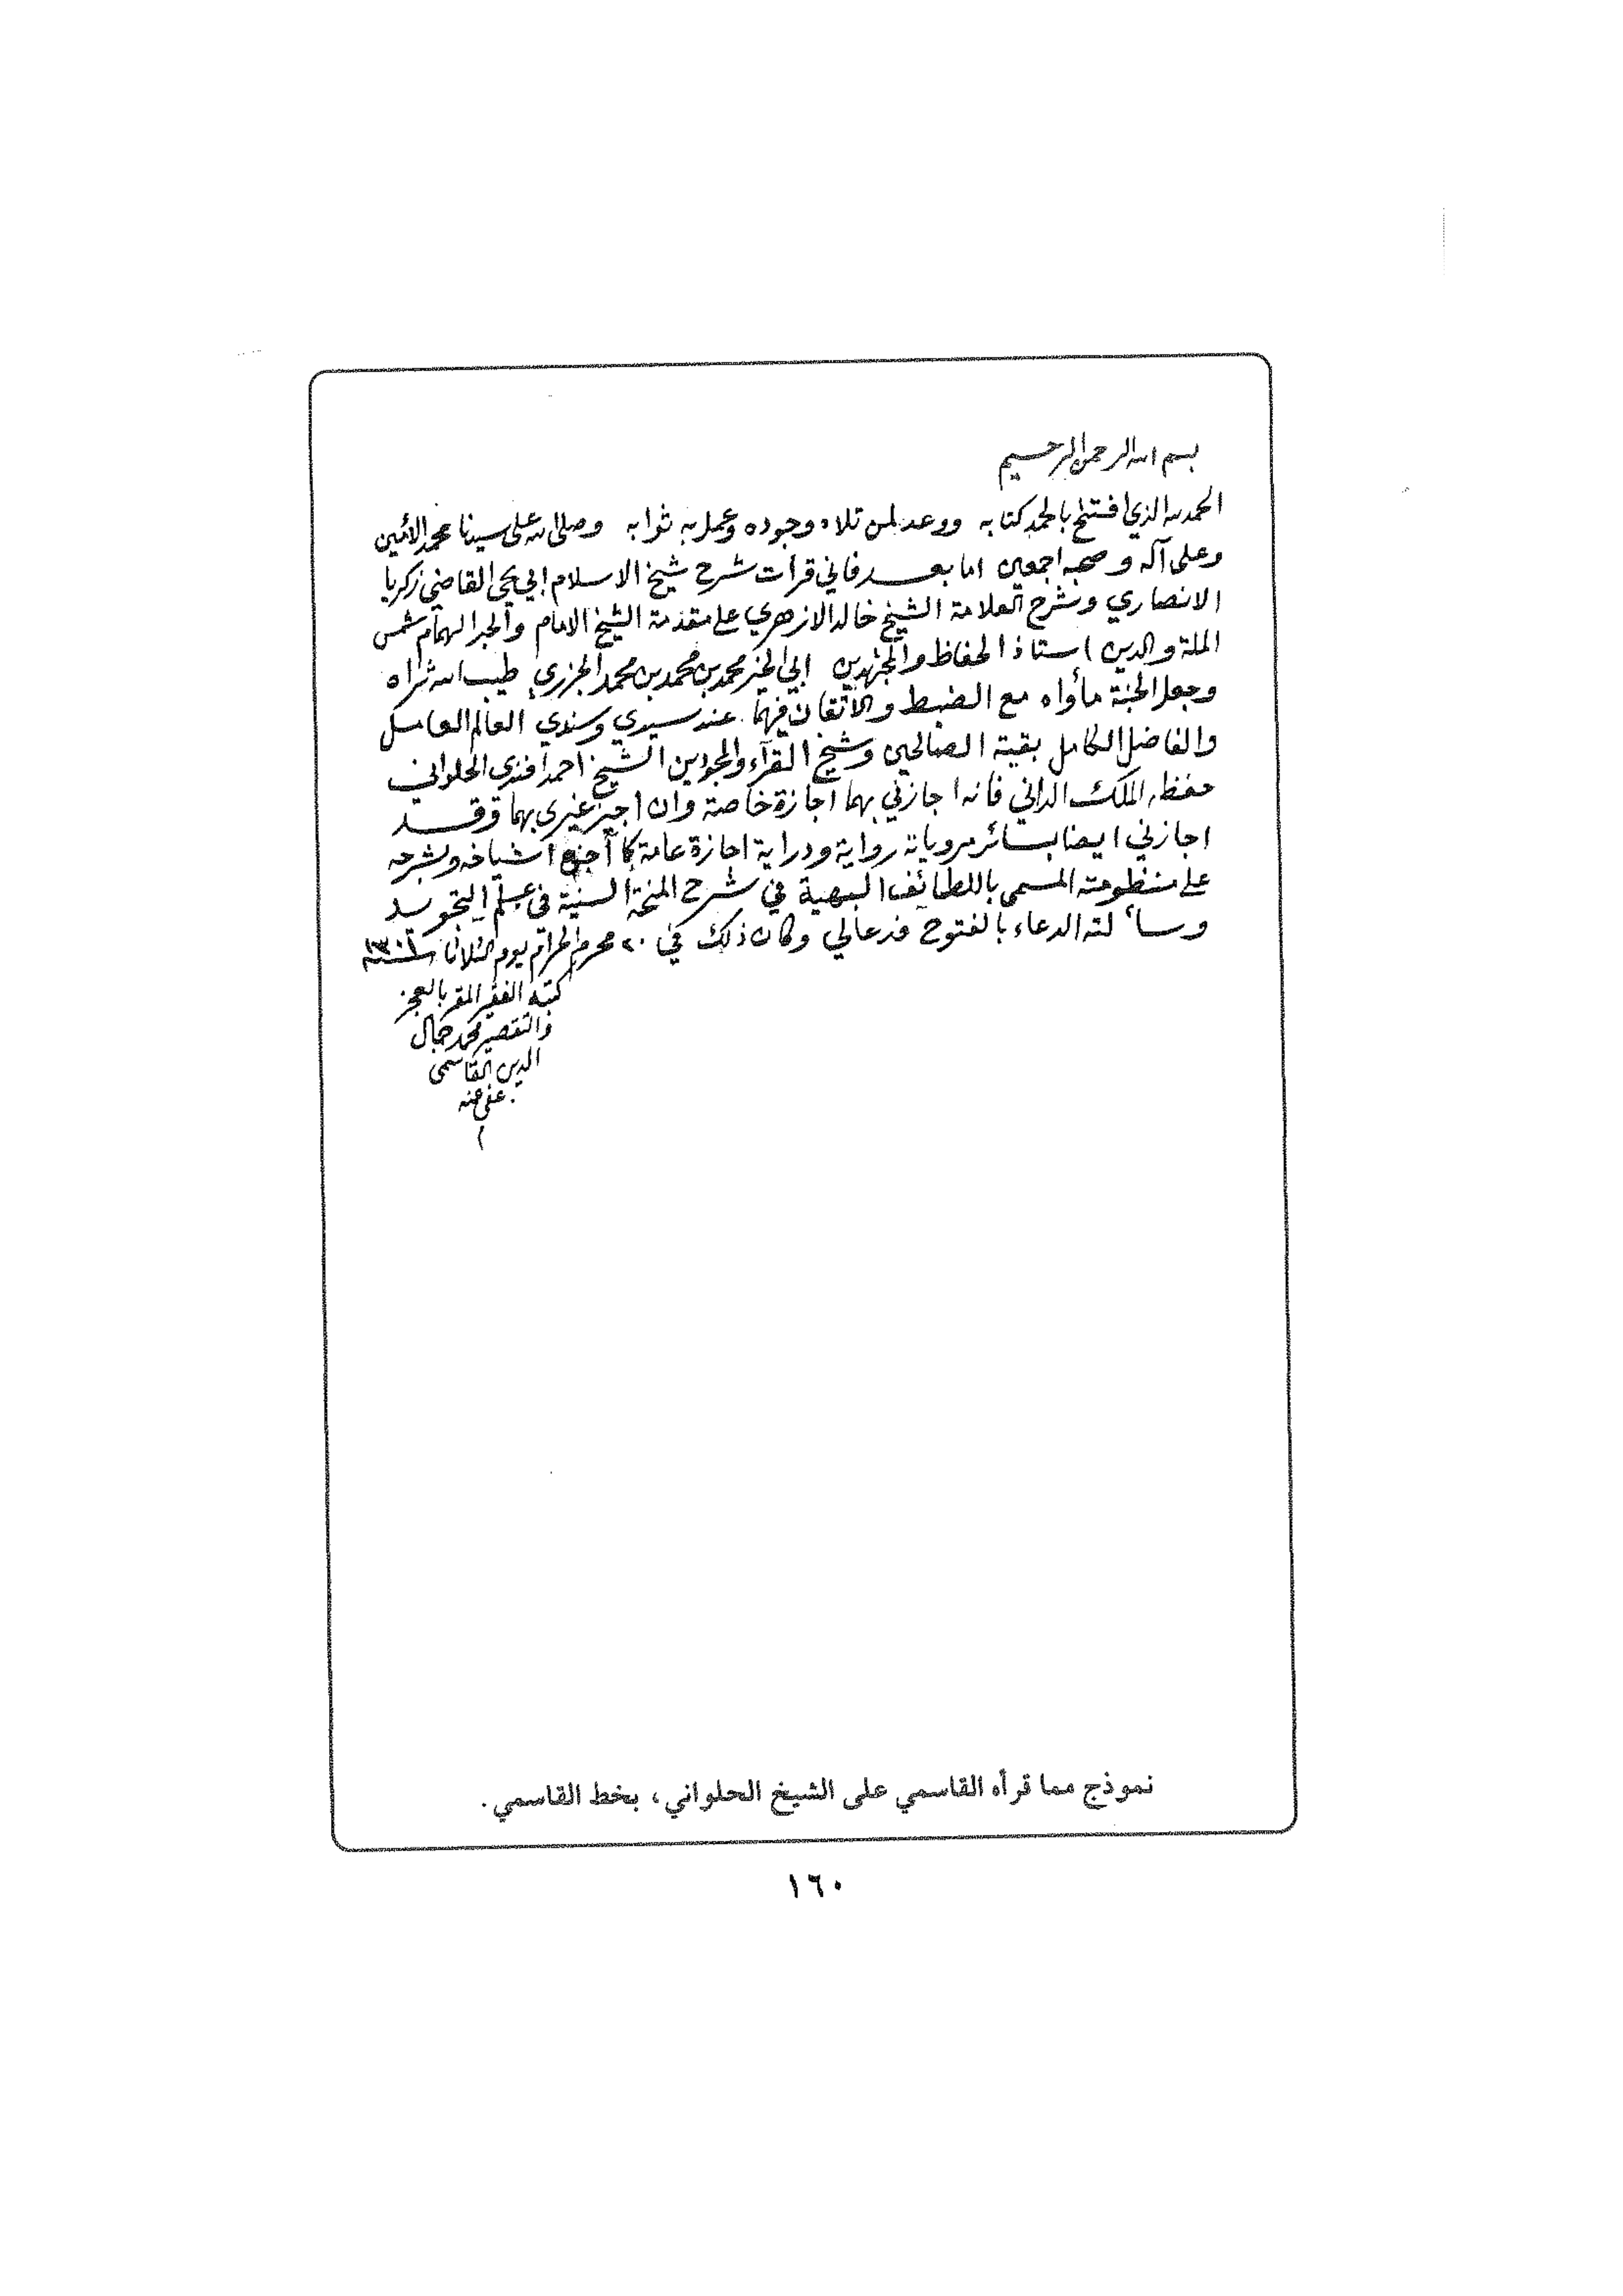 بسم الله الرحمن الرحيم
الحمد لله الذي افتتح بالحمد كتابه ووعد لمن تلاه وجوده وعمل به ثوابه وصلى الله على سيدنا محمد الأمين
وعلى آله وصحبه اجمعين اما بعد فاني قرأت شرح شيخ الاسلام ابي يحيى القاضي زكريا
الانصاري وشرح العلامة الشيخ خالد الازهري على مقدمة الشيخ الامام والحبر الهمام شمس
الملة والدين استاذ الحفاظ والمجتهدين ابي الخير محمد بن محمد بن محمد الجزري طيب الله ثراه
وجعل الجنة مأواه مع الضبط والاتقان فيهما عند سيدي وسندي العالم العامل
والفاضل الكامل بقية الصالحين وشيخ القرآء والمجودين الشيخ احمد افندي الحلواني
حفظه الملك الداني فانه اجازني بهما اجازة خاصة وان اجيز غيري بهما وقد
اجازني ايضا بسائر مروياته رواية ودراية اجازة عامة كما أجازه اشياخه وبشرحه
على منظومته المسمى باللطائف البهية في شرح المنحة السنية في علم التجويد
وسألته الدعاء بالفتوح فدعالي وكان ذلك في ٢٠ محرم الحرام يوم الثلاثا سنة
كتبه الفقير المقر بالعجز
والتقصير محمد جمال
الدين القاسمي
عفي عنه
نموذج مما قرأه القاسمي على الشيخ الحلواني، بخط القاسمي.
١٦٠